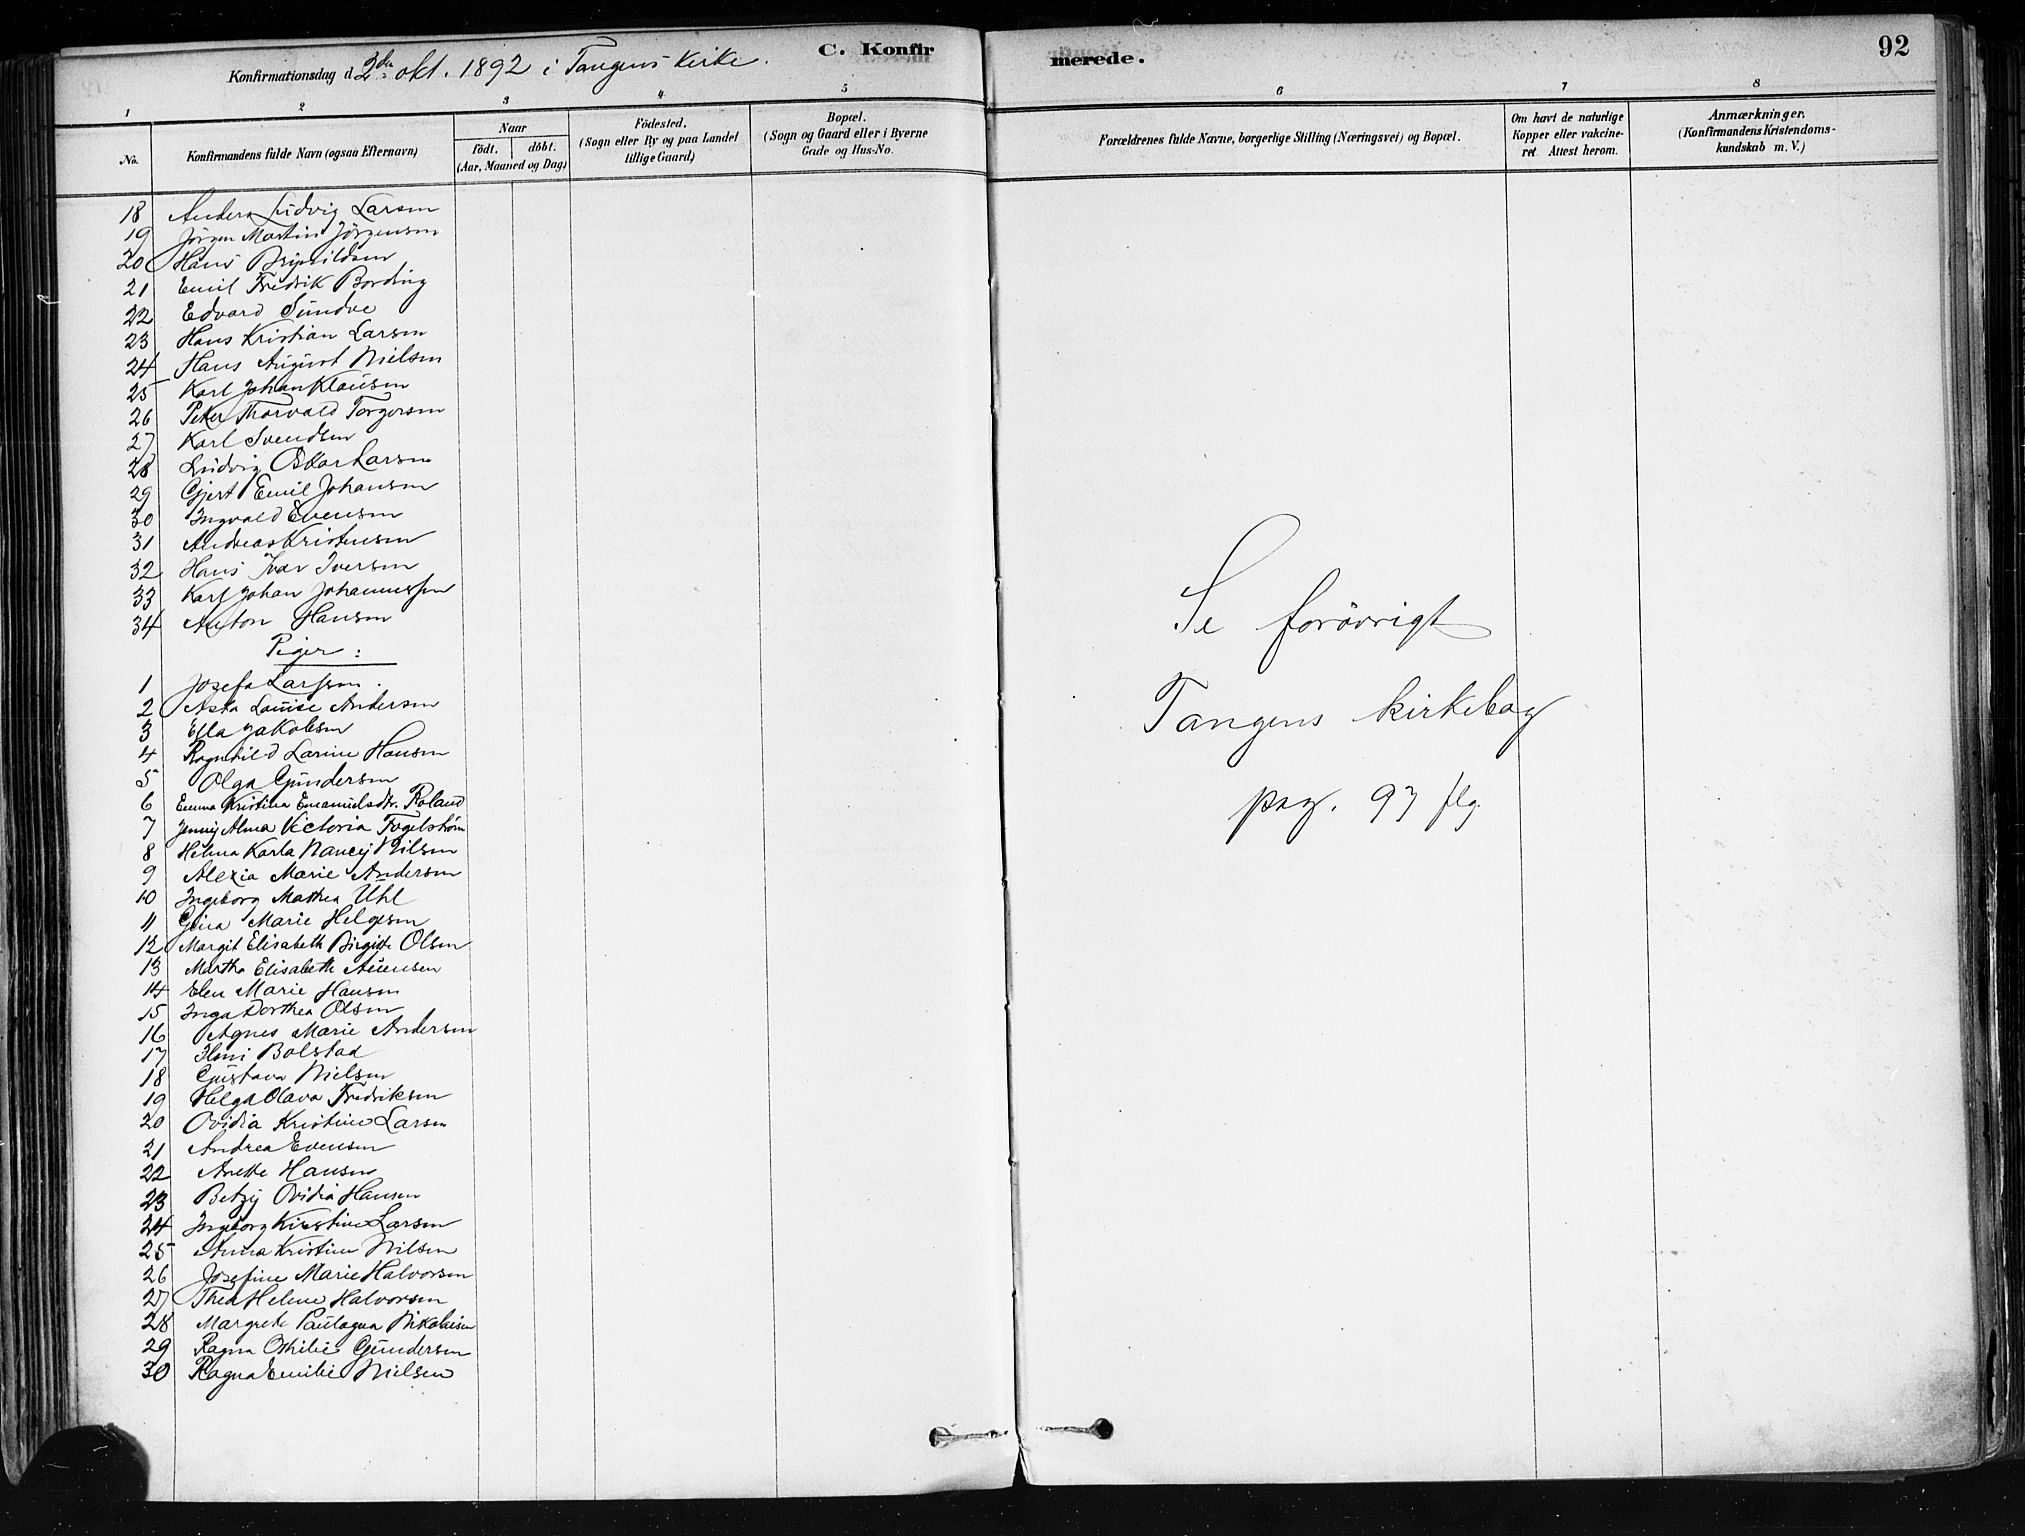 C. Konfir
merede.
92
Konfirmationsdag d. 2den okt. 1892 i Tangens kirke.
1 2 3 4 5 6 7 8
No.
Konfirmandens fulde Navn (ogsaa Efternavn)
Naar
födt. döbt.
(Aar, Maaned og Dag)
Födested.
(Sogn eller By og paa Landet
tillige Gaard)
Bopæl.
(Sogn og Gaard eller i Byerne
Gade og Hus-No.
Forældrenes fulde Navne, borgerlige Stilling (Næringsvei) og Bopæl.
Om havt de naturlige
Kopper eller vakcine-
ret. Attest herom.
Anmærkninger.
(Konfirmandens Kristendoms-
kundskab m. V.)
18 Anders Ludvig Larsen
19 Jörgen Martin Jörgensen
20 Hans Brynildsen
21 Emil Fredrik Bording
22 Edvard Sundve
23 Hans Kristian Larsen
24 Hans August Nielsen
25 Karl Johan Klausen
26 Peter Thorvald Torgersen
27 Karl Svendsen
28 Ludvig Oskar Larsen
29 Gjert Emil Johansen
30 Ingvald Evensen
31 Andreas Kristensen
32 Hans Ivar Iversen
33 Karl Johan Johannessen
34 Anton Hansen
Piger:
1 Josefa Larssen.
2 Asta Louise Andersen
3 Ella Jakobsen
4 Ragnhild Larine Hansen
5 Olga Gundersen
6 Emma Kristina Emanuelsdtr. Roland
7 Jenny Alma Victoria Fogelström
8 Helma Karla Nancy Nilsen
9 Alexia Marie Andersen
10 Ingeborg Mathea Uhl
11 Gina Marie Helgesen
12 Margit Elisabeth Birgitte Olsen
13 Martha Elisabeth Auensen
14 Elen Marie Hansen
15 Inga Dorthea Olsen
16 Agnes Marie Andersen
17 Bolstad
18 Gustava Nielsen
19 Helga Olava Fredriksen
20 Ovidia Kristine Larsen
21 Andrea Evensen
22 Anette Hansen
23 Betzy Ovidia Hansen
24 Ingeborg Kirstine Larsen
25 Anna Kristine Nilsen
26 Josefine Marie Halvorsen
27 Thea Helene Halvorsen
28 Margrete Paulagna Nikolaisen
29 Ragna Othilie Gundersen
30 Ragna Emilie Nielsen
Se forövrigt
Tangens kirkebog
pag. 97 flg.